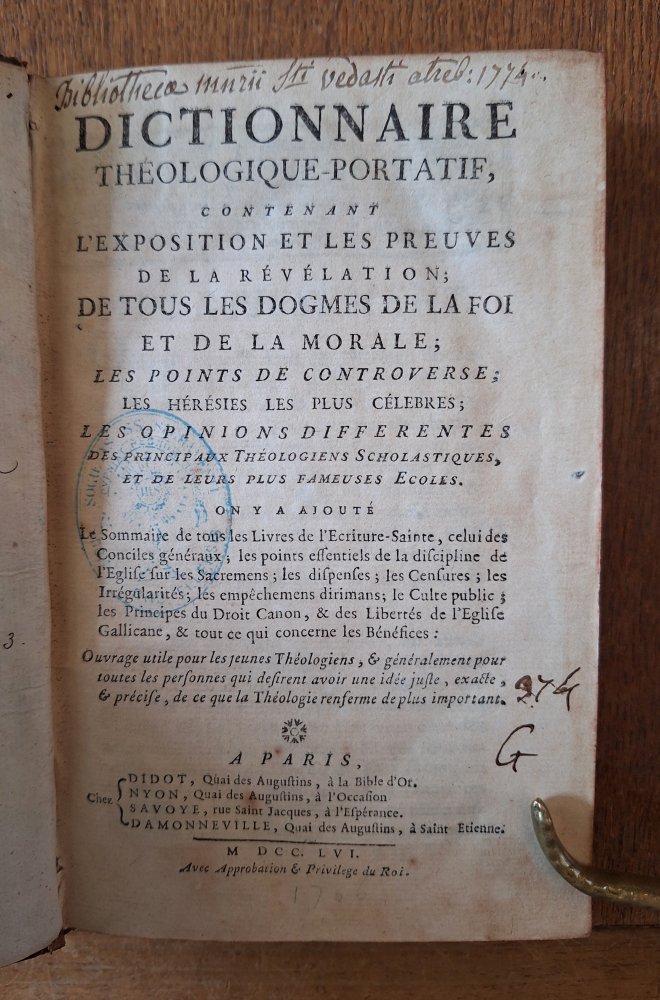 Bibliothecæ mnrii Sti vedasti atreb: 1774.
DICTIONNAIRE
THÉOLOGIQUE-PORTATIF,
CONTENANT
L'EXPOSITION ET LES PREUVES
DE LA RÉVÉLATION;
DE TOUS LES DOGMES DE LA FOI
ET DE LA MORALE;
LES POINTS DE CONTROVERSE;
LES HÉRÉSIES LES PLUS CÉLEBRES;
LES OPINIONS DIFFERENTES
DES PRINCIPAUX THÉOLOGIENS SCHOLASTIQUES,
ET DE LEURS PLUS FAMEUSES ECOLES.
ON Y A AJOUTÉ
Le Sommaire de tous les Livres de l'Ecriture-Sainte, celui des
Conciles généraux; les points eſſentiels de la diſcipline de
l'Egliſe ſur les Sacremens; les diſpenſes; les Cenſures; les
Irrégularités; les empêchemens dirimans; le Culte public;
les Principes du Droit Canon, & des Libertés de l'Egliſe
Gallicane, & tout ce qui concerne les Bénéfices:
Ouvrage utile pour les jeunes Théologiens, & généralement pour
toutes les perſonnes qui deſirent avoir une idée juſte, exacte,
& préciſe, de ce que la Théologie renferme de plus important.
274
G
3.
A PARIS,
Chez
DIDOT, Quai des Auguſtins, à la Bible d'Or.
NYON, Quai des Auguſtins, à l'Occaſion
SAVOYE, rue Saint Jacques, à l'Eſpérance.
DAMONNEVILLE, Quai des Auguſtins, à Saint Etienne.
M DCC. LVI.
Avec Approbation & Privilege du Roi.